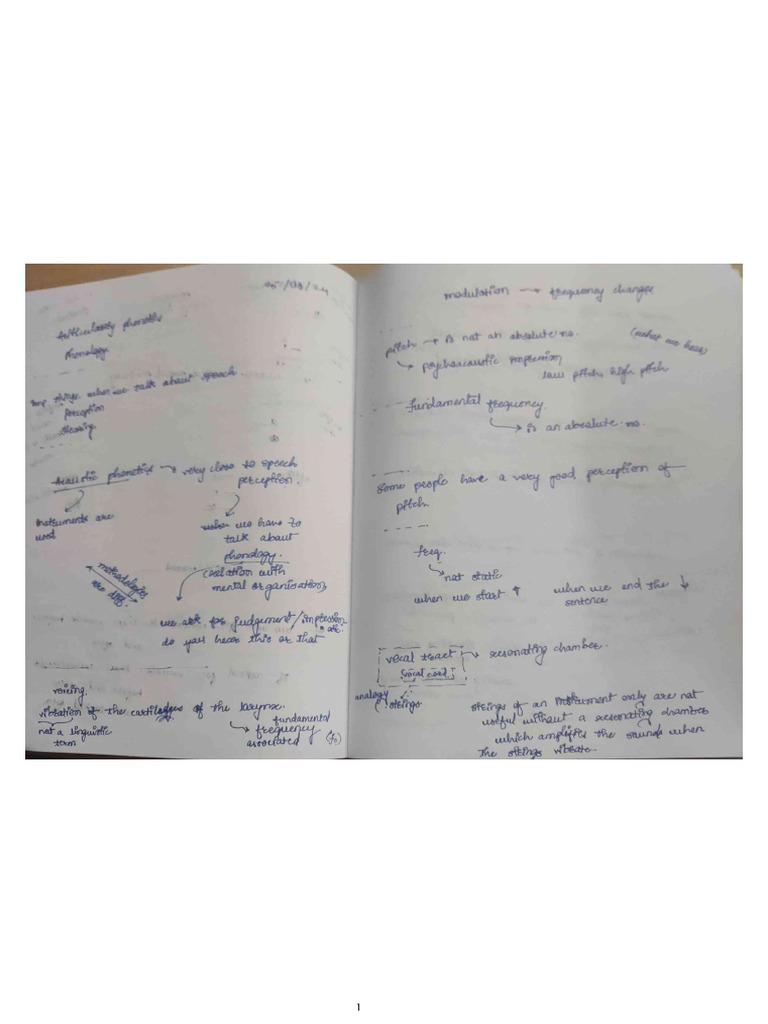 05/08/24
Articulatory phonetics
phonology
Imp things when we talk about speech
perception
Hearing
Acoustic phonetics → very close to speech
perception.
Instruments are
used
when we have to
talk about
phonology.
methodologies
are diff
(relation with
mental organisation)
we ask for judgement/impression
etc.
do you hear this or that
voicing.
vibration of the cartilages of the larynx.
not a linguistic
term
fundamental
frequency
associated (f0)
modulation → frequency changes
pitch → is not an absolute no. (what we hear)
→ psychoacoustic impression
low pitch, high pitch
fundamental frequency
→ is an absolute no.
Some people have a very good perception of
pitch.
freq.
→ not static
when we start ↑ when we end the ↓
sentence
vocal tract → resonating chamber.
vocal cord
analogy
strings
strings of an instrument only are not
useful without a resonating chamber
which amplifies the sounds when
the strings vibrate.
1